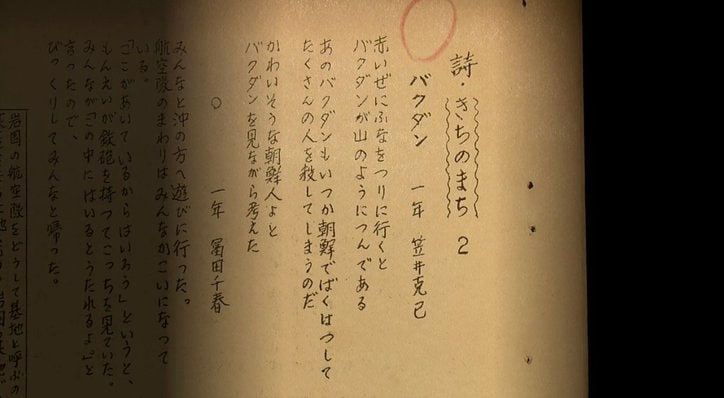 詩・きちのまち 2
バクダン 一年 笠井克己
赤いぜにふなをつりに行くと
バクダンが山のようにつんである
あのバクダンもいつか朝鮮でばくはつして
たくさんの人を殺してしまうのだ
かわいそうな朝鮮人よと
バクダンを見ながら考えた
○ 一年 冨田千春
みんなと沖の方へ遊びに行った。
航空隊のまわりはみんなかこいになって
いる。
「ここがあいているからはいろう」というと、
もんえいが鉄砲を持つてこっちを見ていた。
みんなが「この中にはいるとうたれるよ」と
言ったので、
びっくりしてみんなと帰った。
岩国の航空隊をどうして基地と呼ぶの